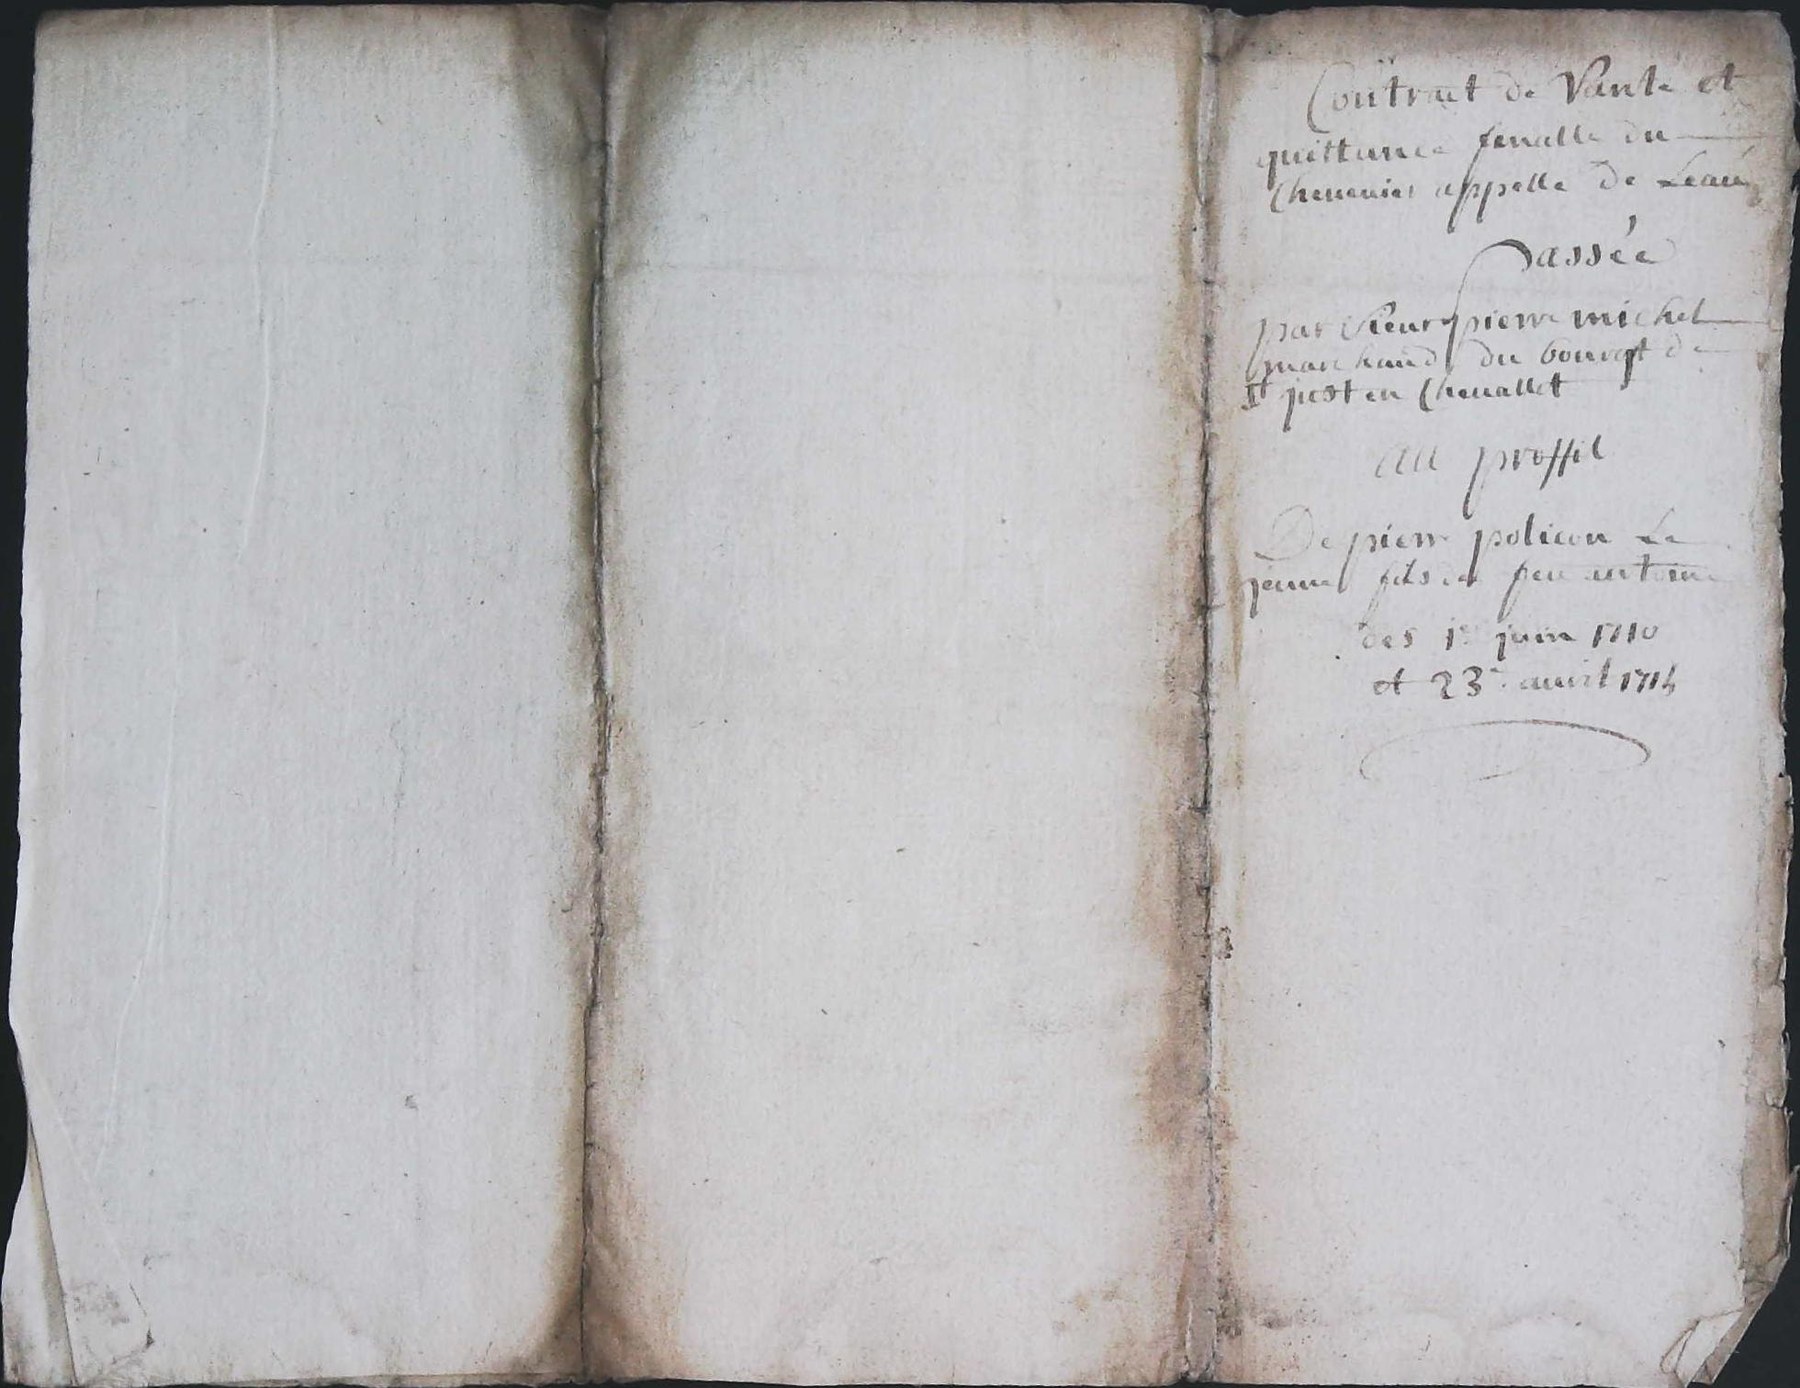 Contract de Vante et
quittance fenalle du
Chenevier appelle de Leau
Passée
par Sieur pierre michel
marchand du bourgt de
St just en Chevallet
au proffit
De pierre policon Le
jeune fils de feu antoine
des 1er juin 1710
et 23e avril 1715